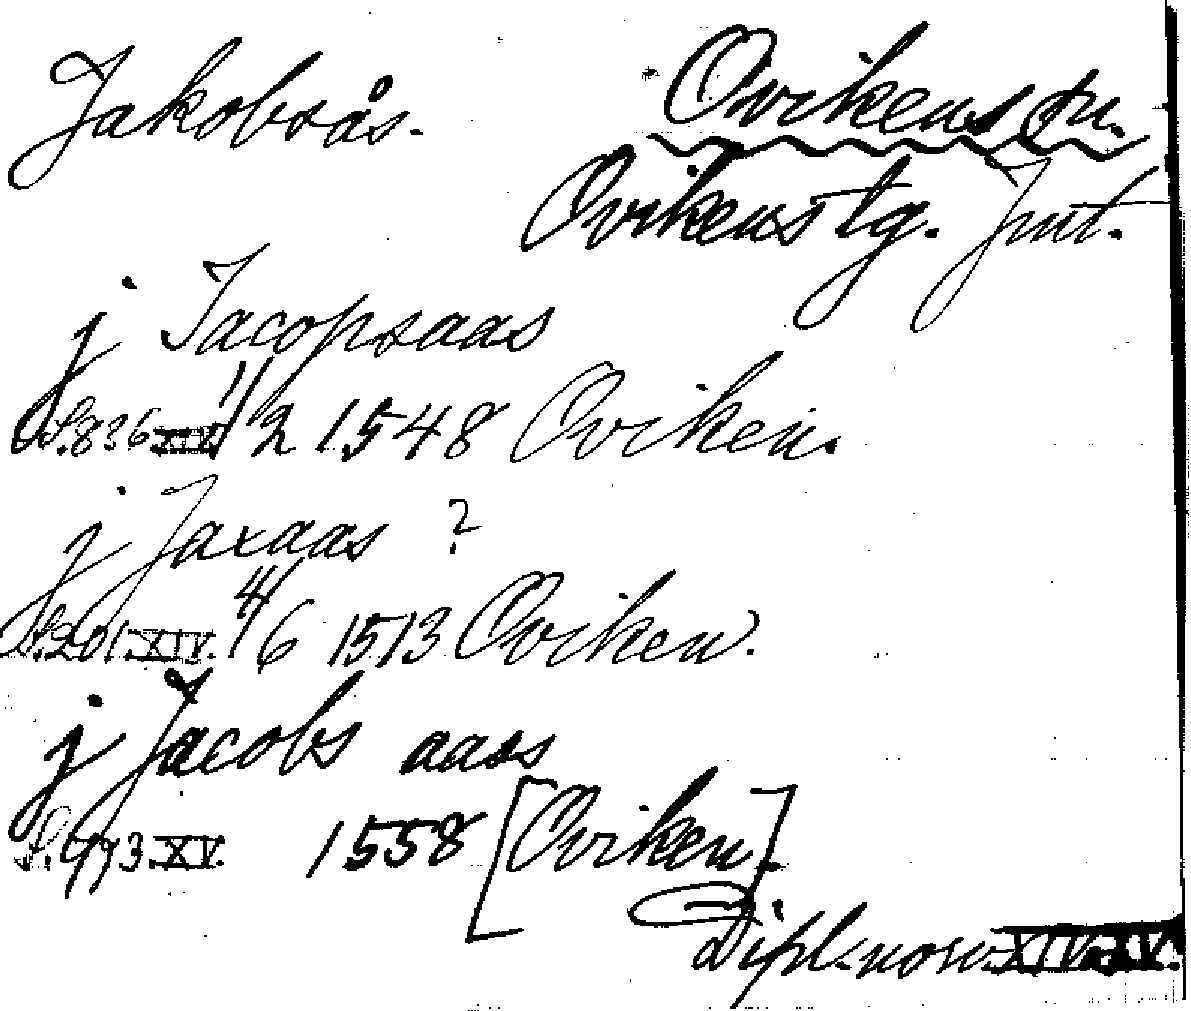 Jakobsås. Ovikens sn.
Ovikens tg. Jmt.
j Jacopsaas
S. 836 XIV. 11/2 1548 Oviken.
j Jaxaas ?
S. 201. XIV. 4/6 1513 Oviken.
j Jacobs aass
S. 973. XV. 1558 [Oviken].
Dipl. norv. XIV. XV.